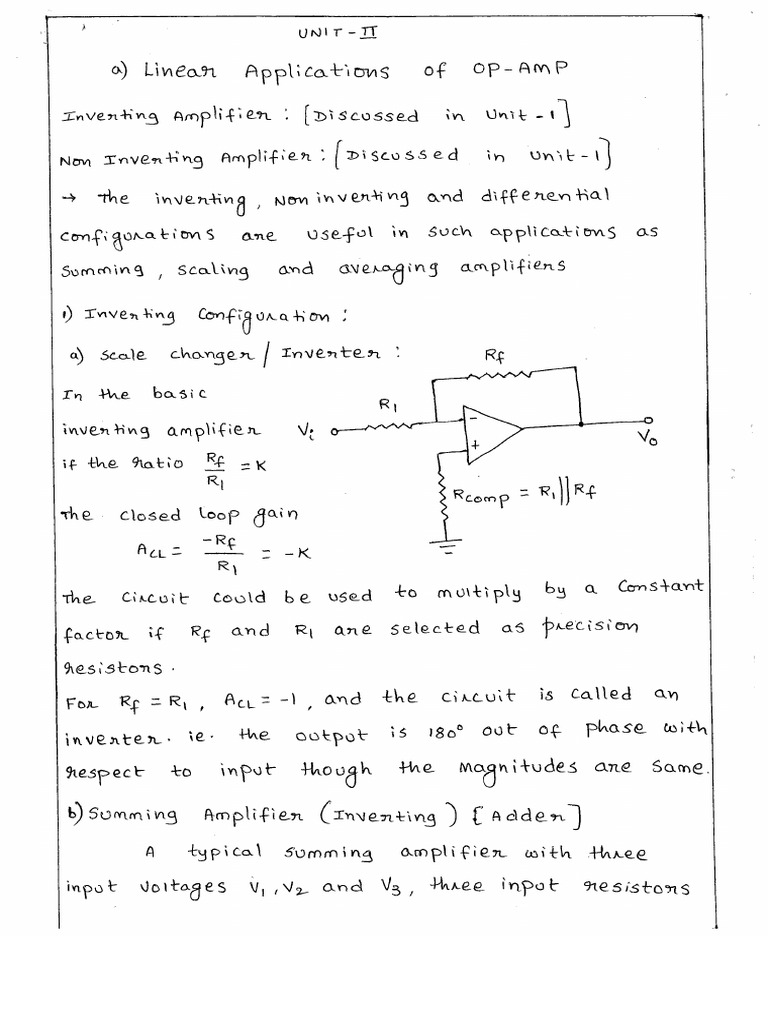 UNIT-II
a) Linear Applications of OP-AMP
Inverting Amplifier : [Discussed in Unit-1]
Non Inverting Amplifier : [Discussed in Unit-1]
→ The inverting, Non inverting and differential
configurations are useful in such applications as
summing, scaling and averaging amplifiers
1) Inverting Configuration :
a) Scale changer / Inverter :
Rf
In the basic
R1
inverting amplifier
Vi
-
+
Vo
if the ratio Rf/R1 = K
Rcomp = R1||Rf
The closed loop gain
ACL = -Rf/R1 = -K
The circuit could be used to multiply by a constant
factor if Rf and R1 are selected as precision
resistors.
For Rf = R1, ACL = -1, and the circuit is called an
inverter. ie. the output is 180° out of phase with
respect to input though the magnitudes are same.
b) Summing Amplifier (Inverting) [Adder]
A typical summing amplifier with three
input voltages V1, V2 and V3, three input resistors